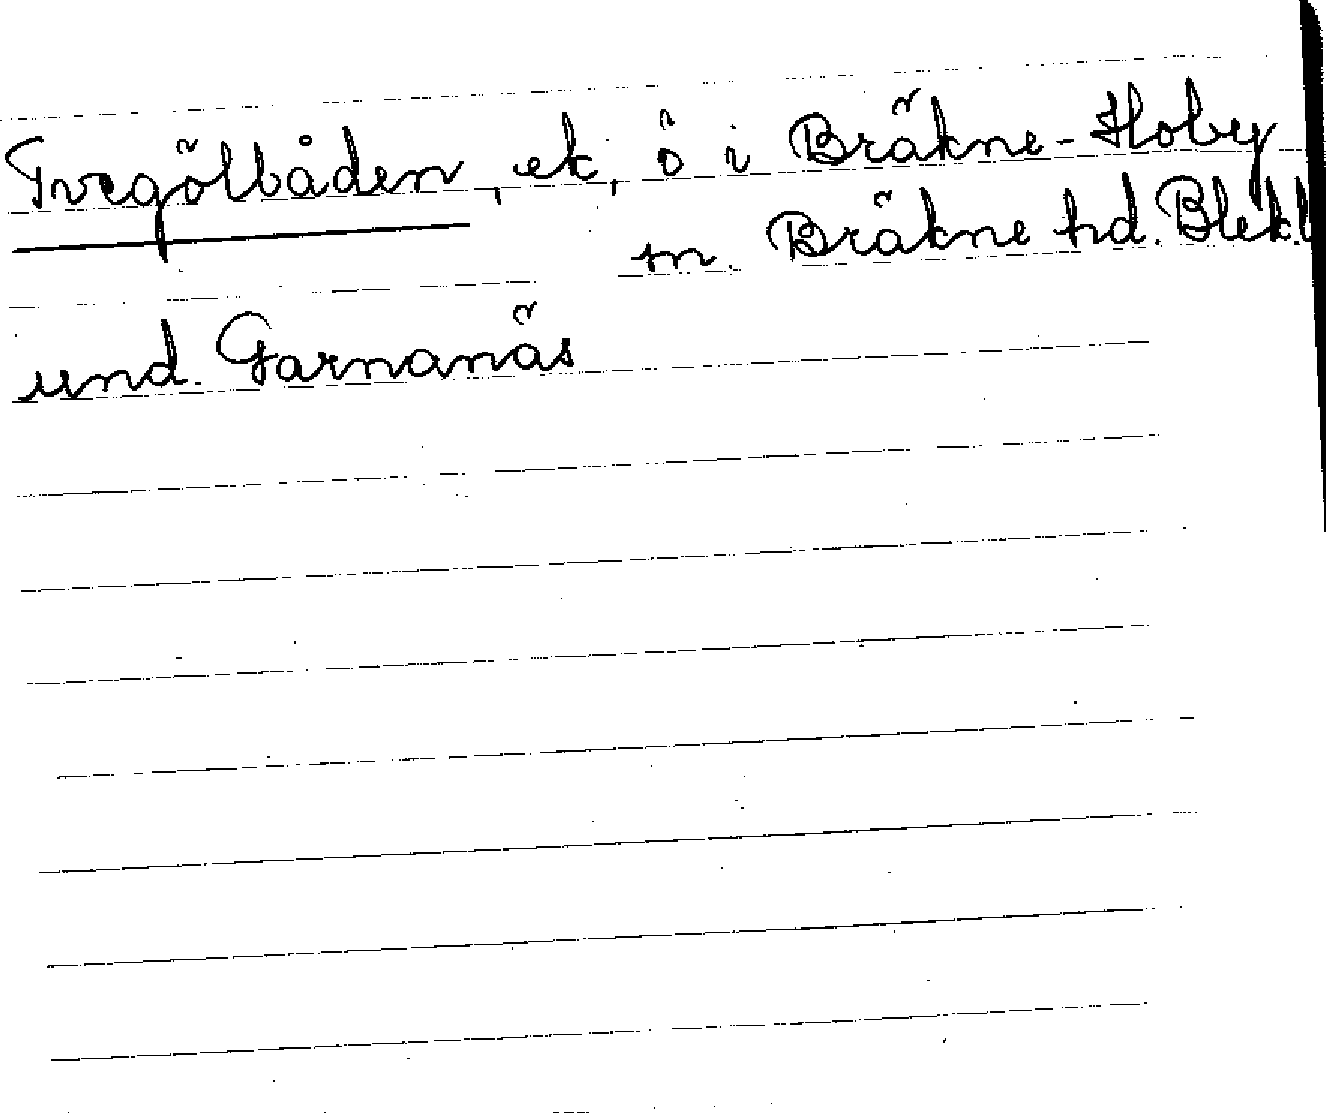 Tvegölbåden, ek, ö i Bräkne-Hoby
m. Bräkne hd. Blek.l
und. Garnanäs